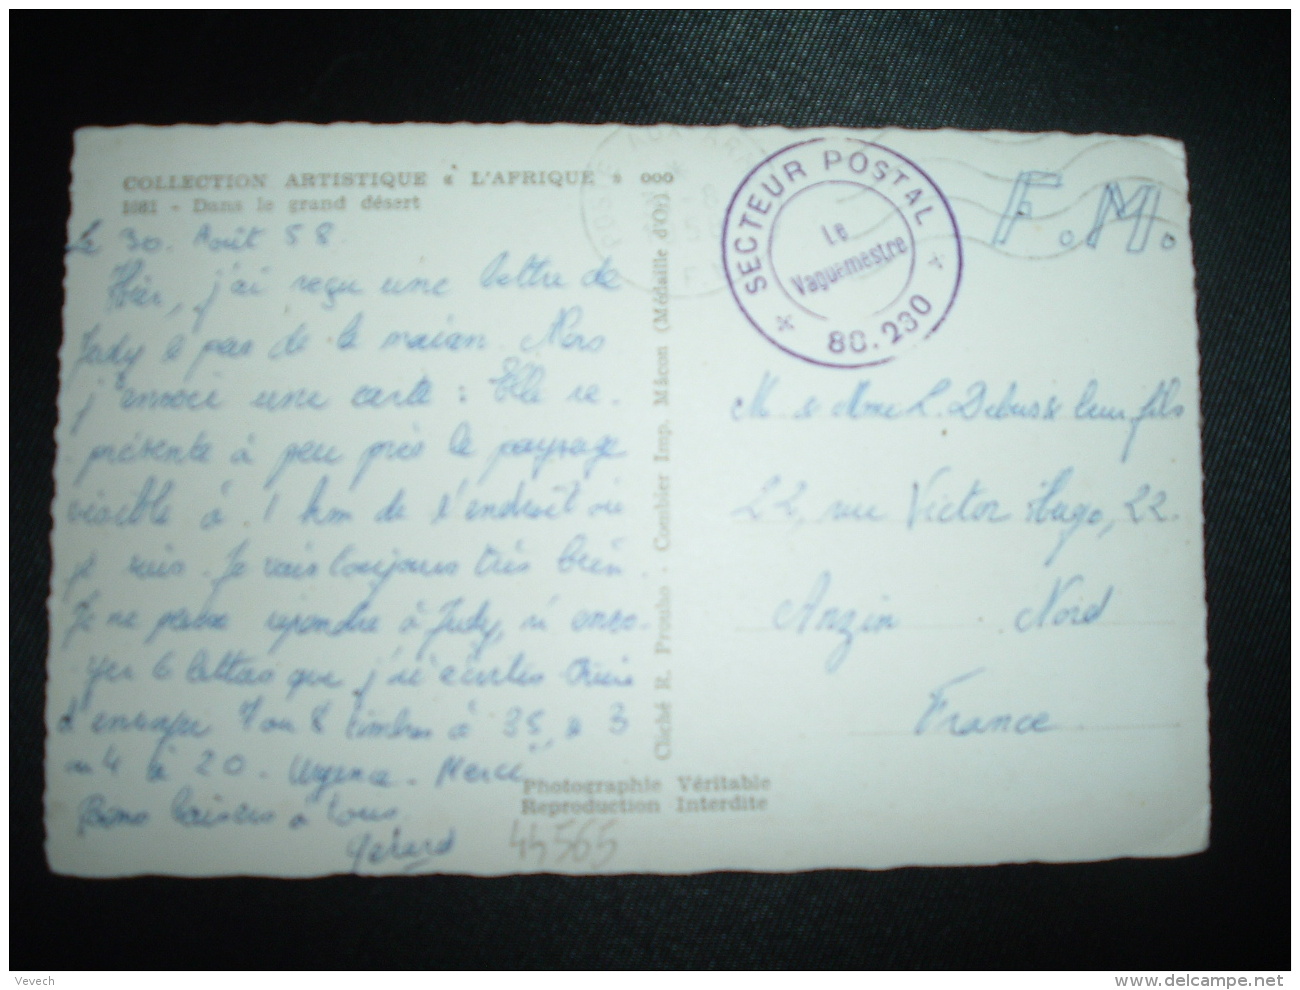 COLLECTION ARTISTIQUE « L'AFRIQUE » 000
1981 - Dans le grand désert
Le 30. Août 58.
Hier, j'ai reçu une lettre de
Judy & pas de la maison. Mais
une carte : Elle re-
présente à peu près le paysage
visible à 1 km de l'endroit où
je suis. Je vais toujours très bien
Je ne peux répondre à Judy, ni envo-
yer 6 lettres que j'ai écrites
d'envoyer 7 ou 8 timbres à 35, & 3
ou 4 à 20. Urgence. Merci
Bons baisers à tous
Gérard
44565
Photographie Véritable
Reproduction Interdite
Cliché R. Prouho - Combier Imp. Mâcon (Médaille d'Or)
POSTE AUX ARM
SECTEUR POSTAL
Le
Vaguemestre
* 80.230 *
F.M.
M & Mme L. Debus & leur fils
22, rue Victor Hugo, 22.
Anzin Nord
France
Vevech
www.delcampe.net